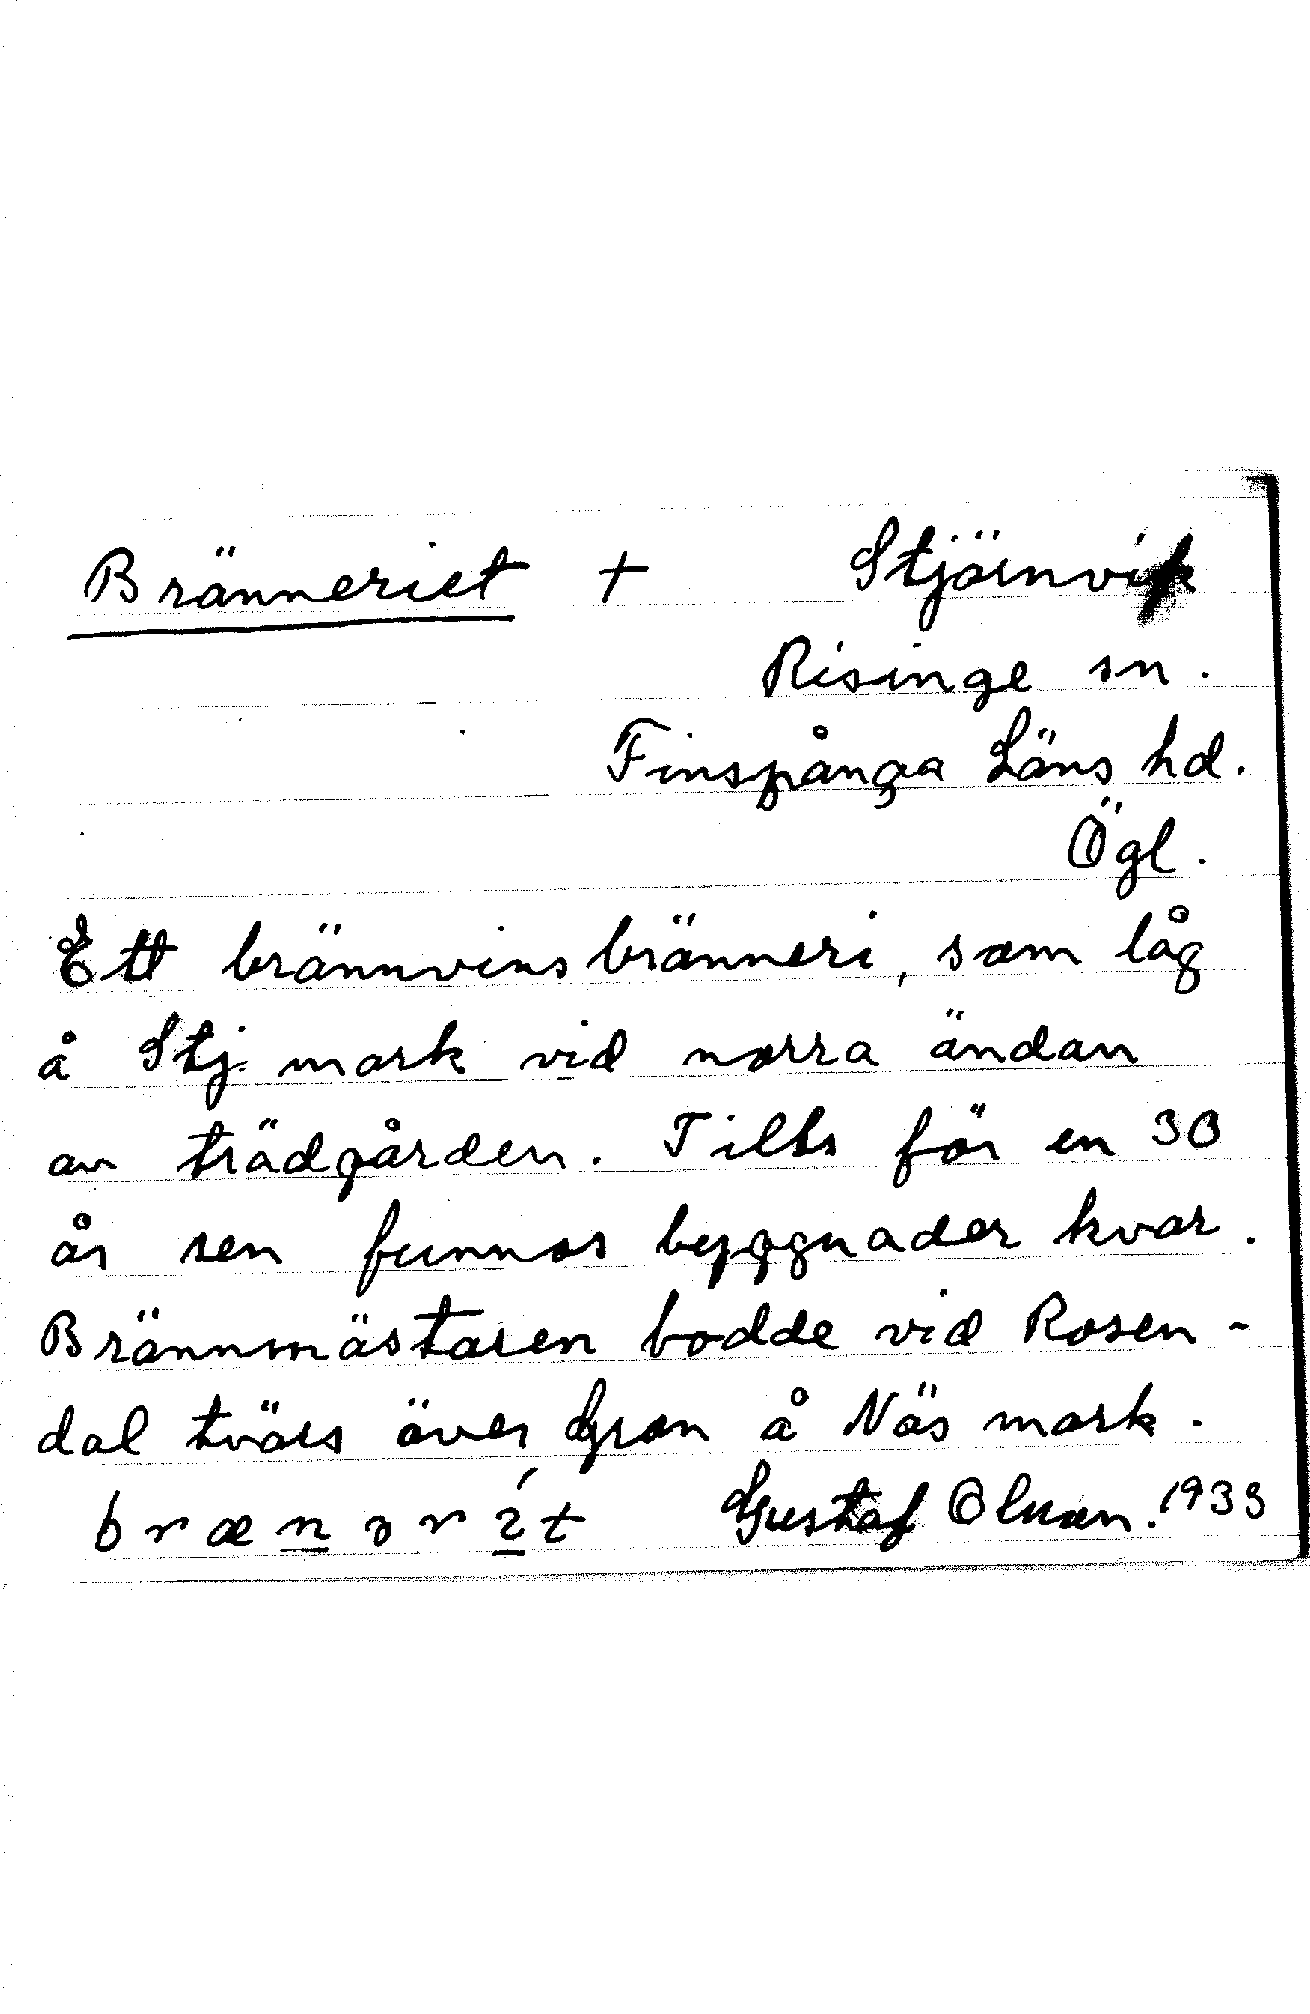 Bränneriet + Stjärnvik
Risinge sn.
Finspånga Läns hd.
Ögl.
Ett brännvinsbränneri, som låg
å Stj. mark vid norra ändan
av trädgården. Tills för en 30
år sen funnos byggnader kvar.
Brännmästaren bodde vid Rosen-
dal tvärs över Gron å Näs mark.
Gustaf Olsson. 1933